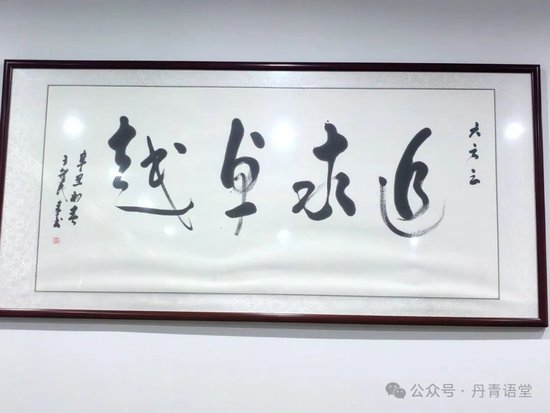 大方云
追求卓越
辛丑初春
公众号·丹青语堂